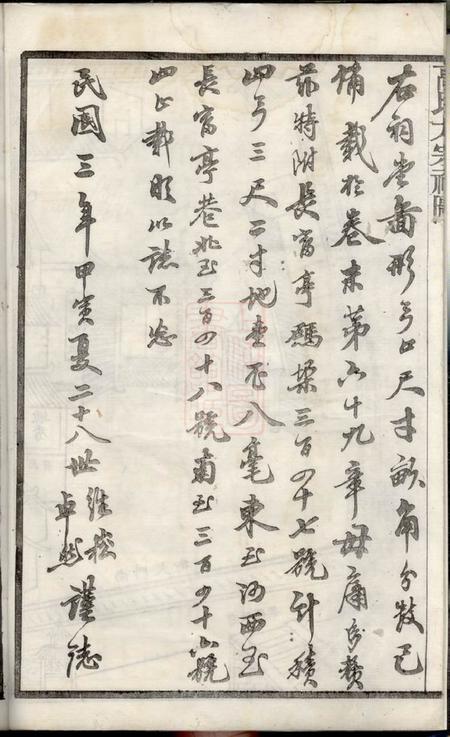 右祠堂圖形弓口尺寸畝角分數已
補載於卷末第六十九章毋庸多贅
茲特附長富亭碼梁三百四十七號計積
四弓三尺二寸地壹厘八毫東至河西至
長富亭巷北至三百四十八號南至三百四十六號
四止載明以誌不忘
民國三年甲寅夏二十八世維崧
卓然
謹誌
大宗祠